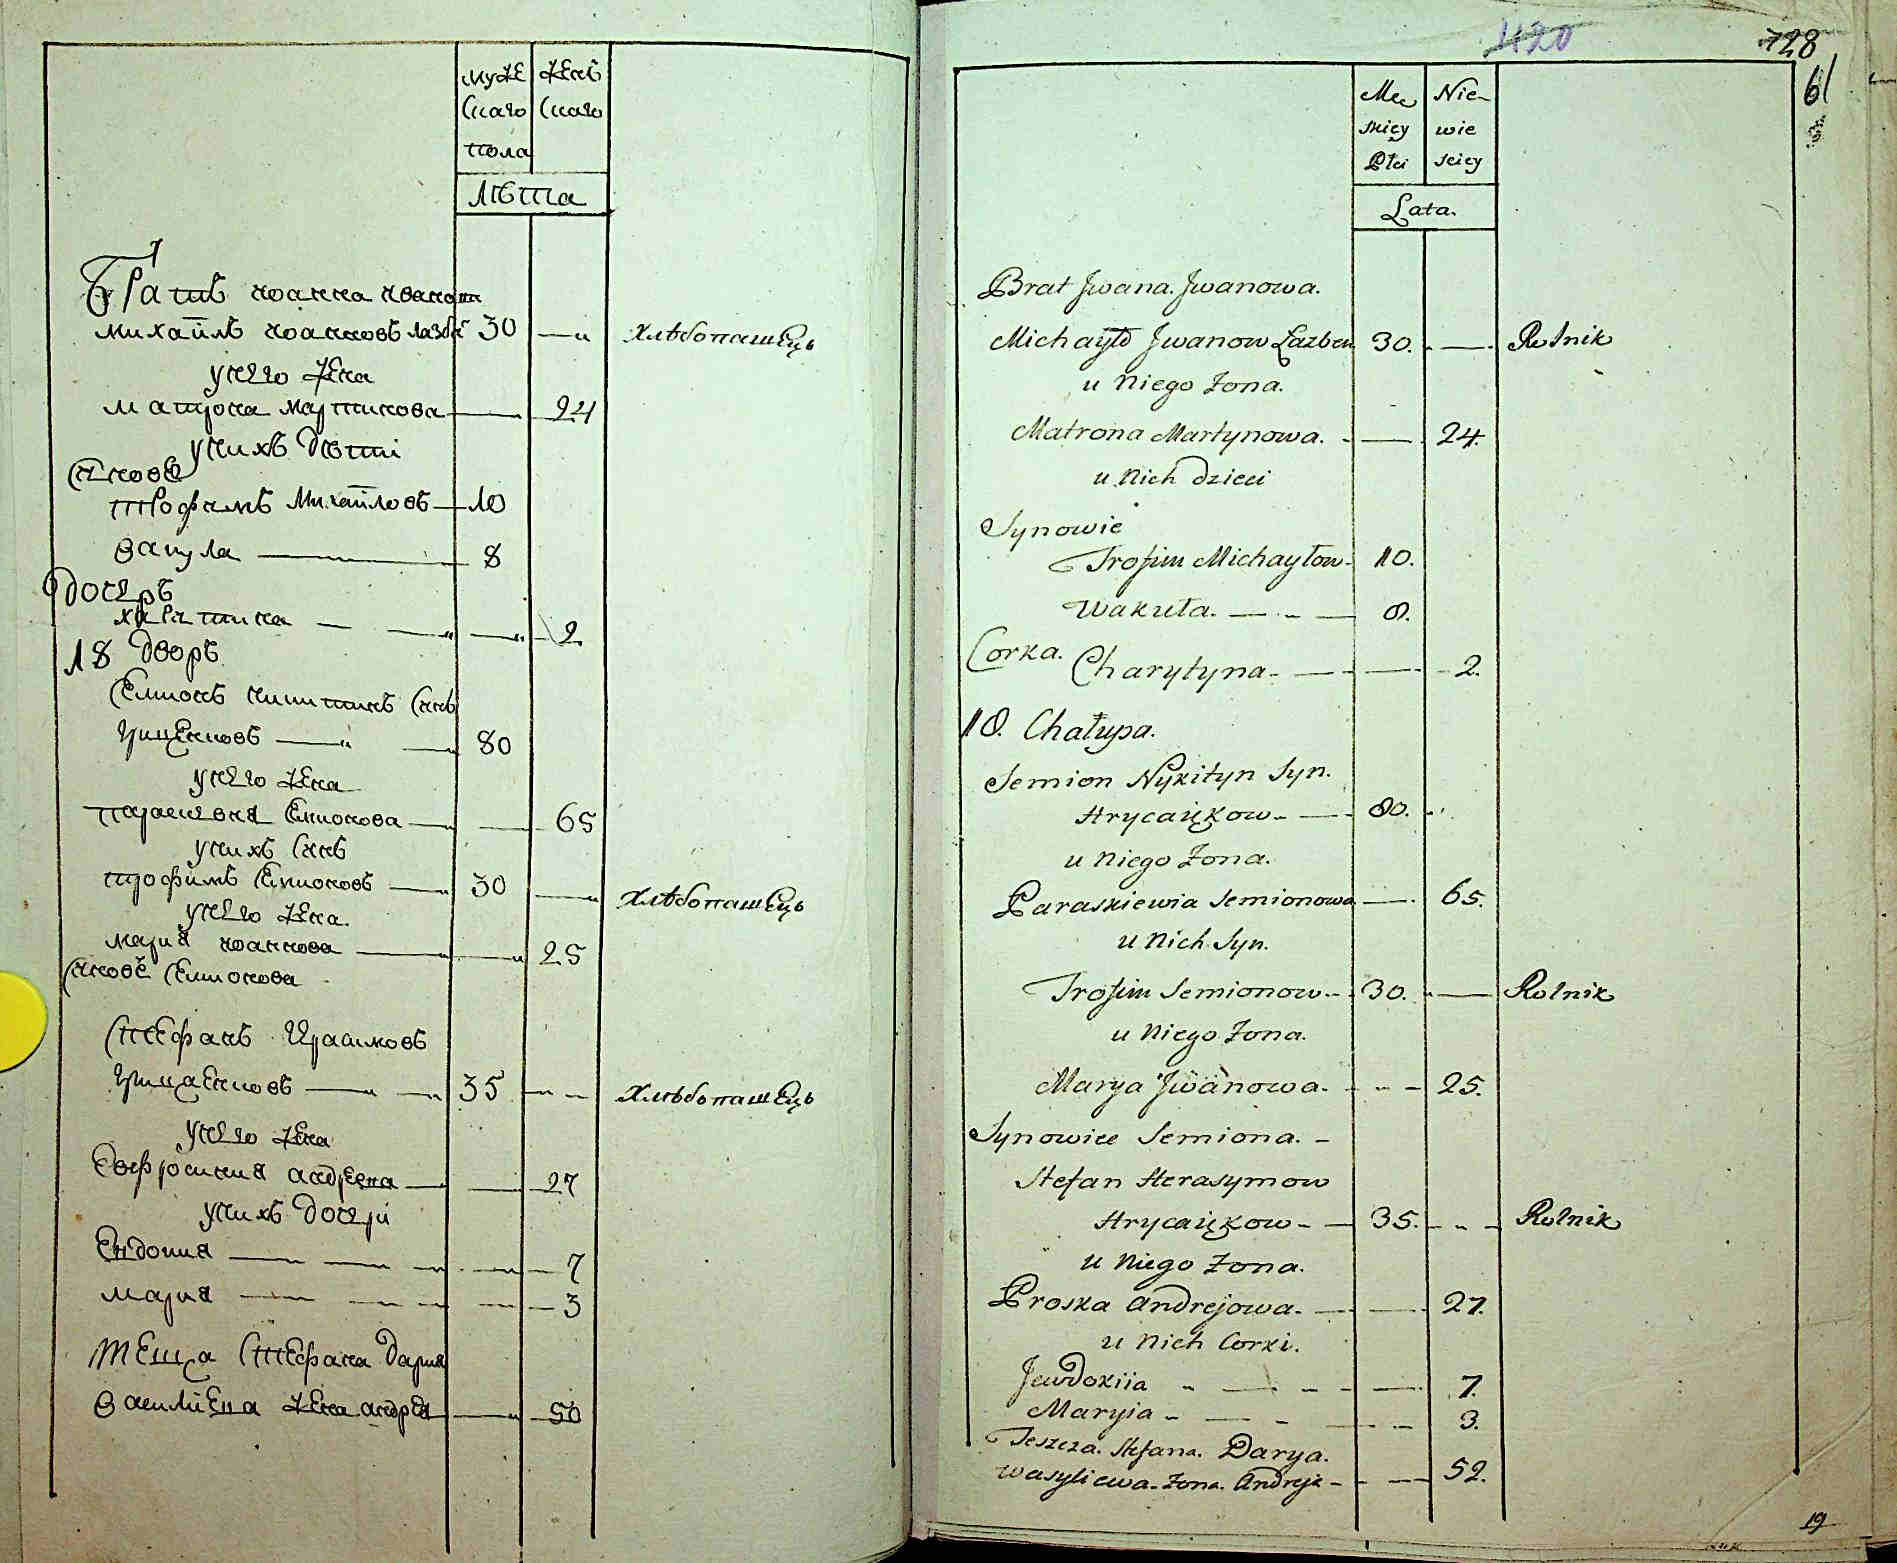 муже
скаго
пола
женъ
скаго
лѣта
Братъ иоанна иванова
михаилъ иоанновъ лазбе 30
хлѣбопашецъ
унего жена
матрона мартинова 24
унихъ дѣти
синове
трофимъ михаиловъ 10
вакула 8
дочерь
харитина 2
18 дворъ
семионъ никитинъ синъ
гриценковъ 80
унего жена
параскевия семионова 65
унихъ синъ
трофимъ семионовъ 30
хлѣбопашецъ
унего жена
мария иоаннова 25
синовѣ семионова
стефанъ
грицаенковъ 35
хлѣбопашецъ
унего жена
евфросиния андреева 27
унихъ дочери
евдокия 7
мария 3
теща стефана дария
василиева жена андрея 50
420
728
61
Mę
skiey
Płci
Nie-
wie
sciey
Lata.
Brat Jwana. Jwanowa.
Michayło Jwanow Łazben 30.
Rolnik
u Niego Żona.
Matrona Martynowa. 24.
u Nich dzieci
Synowie
Trofim Michayłow 10.
Wakuła. 8.
Corka.
Charytyna 2.
18. Chałupa.
Semion Nykityn Syn.
Hrycaiękow 80.
u Niego Żona.
Paraskiewia Semionowa 65.
u Nich Syn.
Trofim Semionow 30.
Rolnik
u Niego Żona.
Marya Jwanowa 25.
Synowiec Semiona.
Stefan Herasymow
Hrycaiękow 35.
Rolnik
u Niego Żona.
Proska Andrejowa. 27.
u Nich Corki.
Jewdokiia 7.
Maryia 3.
Teszcza. Stefana. Darya.
Wasyliewa. Żona. Andreja 52.
19